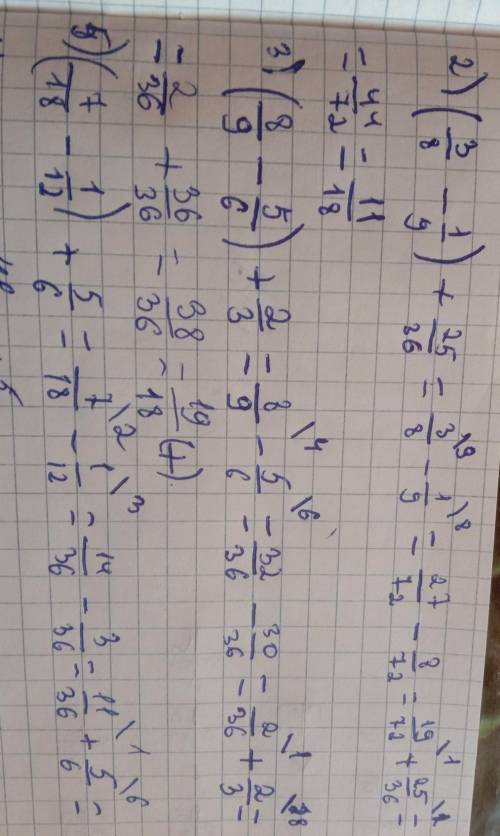 2) (3/8 - 1/9) + 25/36 = 3/8 \9 - 1/9 \8 = 27/72 - 8/72 = 19/72 \1 + 25/36 \2 =
= 44/72 = 11/18
3) (8/9 - 5/6) + 2/3 = 8/9 \4 - 5/6 \6 = 32/36 - 30/36 = 2/36 \1 + 2/3 \18 =
= 2/36 + 36/36 = 38/36 = 19/18 (1).
5) (7/18 - 1/12) + 5/6 = 7/18 \2 - 1/12 \3 = 14/36 - 3/36 = 11/36 \1 + 5/6 \6 =